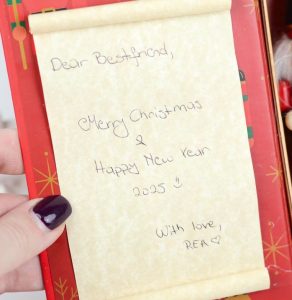 Dear Bestfriend,
Merry Christmas
&
Happy New Year
2025 :)
With love,
REA ♡